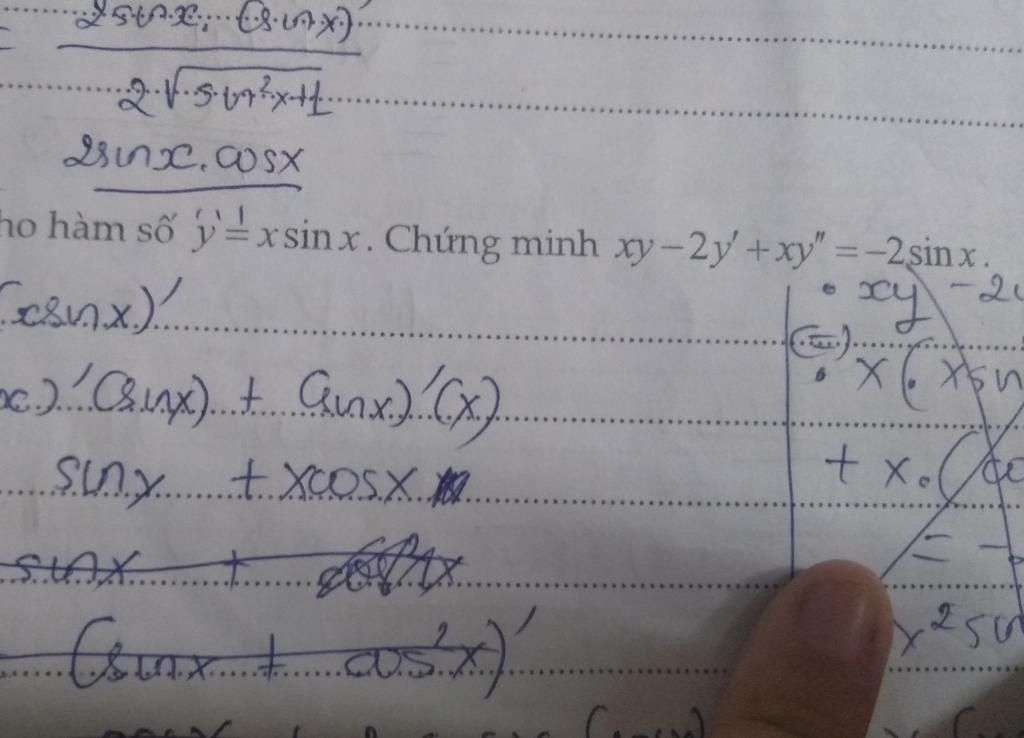 = 2sinx.(sinx)'
2√sin²x+1
2sinx.cosx
ho hàm số y = x sin x. Chứng minh xy − 2y' + xy'' = −2 sin x.
(xsinx)' • xy − 2
(=)
x)'(sinx) + (sinx)'(x) • x(xsin
sinx + xcosx + x.(co
sinx + = −
(sinx + cos²x)' x²sin